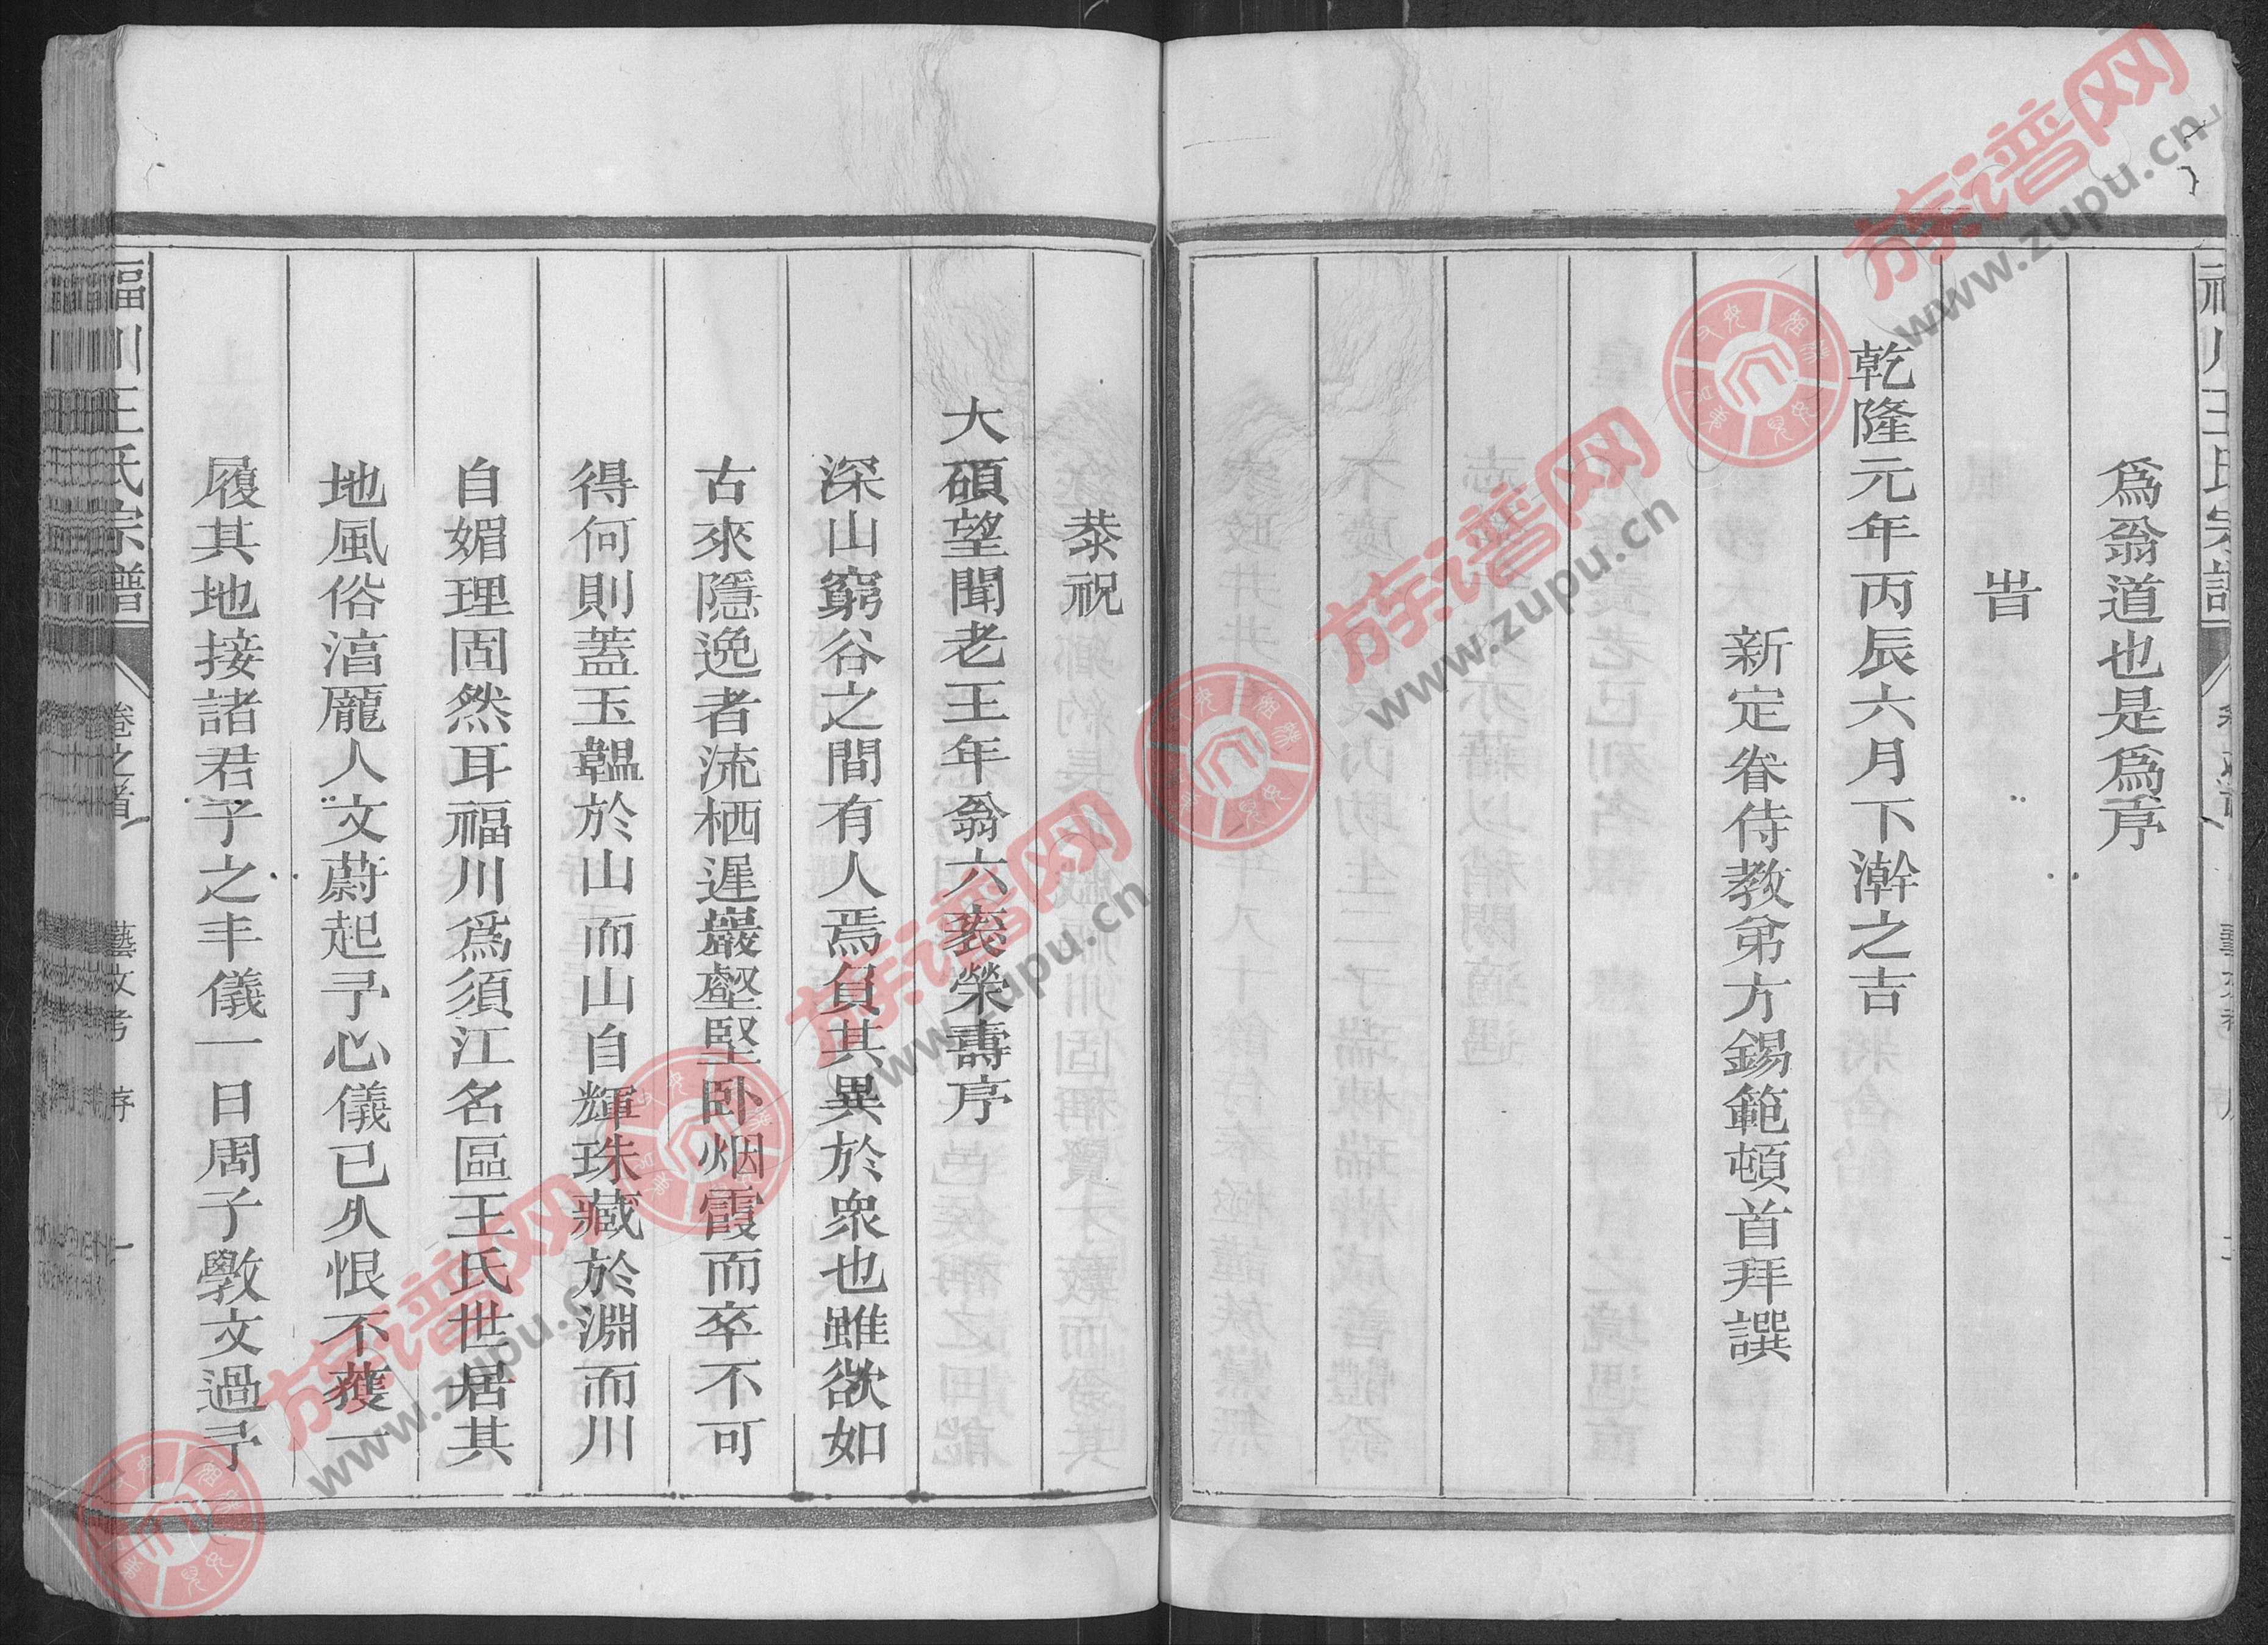 爲翁道也是爲序
旹
乾隆元年丙辰六月下澣之吉
新定眷侍教弟方錫範頓首拜譔
恭祝
大碩望聞老王年翁六袠榮壽序
深山窮谷之間有人焉負其異於衆也雖欲如
古來隱逸者流栖遲巖壑堅卧烟霞而卒不可
得何則蓋玉韞於山而山自輝珠藏於淵而川
自媚理固然耳福川爲須江名區王氏世居其
地風俗湻龎人文蔚起予心儀已久恨不獲一
履其地接諸君子之丰儀一日周子斆文過予
福川王氏宗譜
卷之首
藝文考
序
族谱网
www.zupu.cn